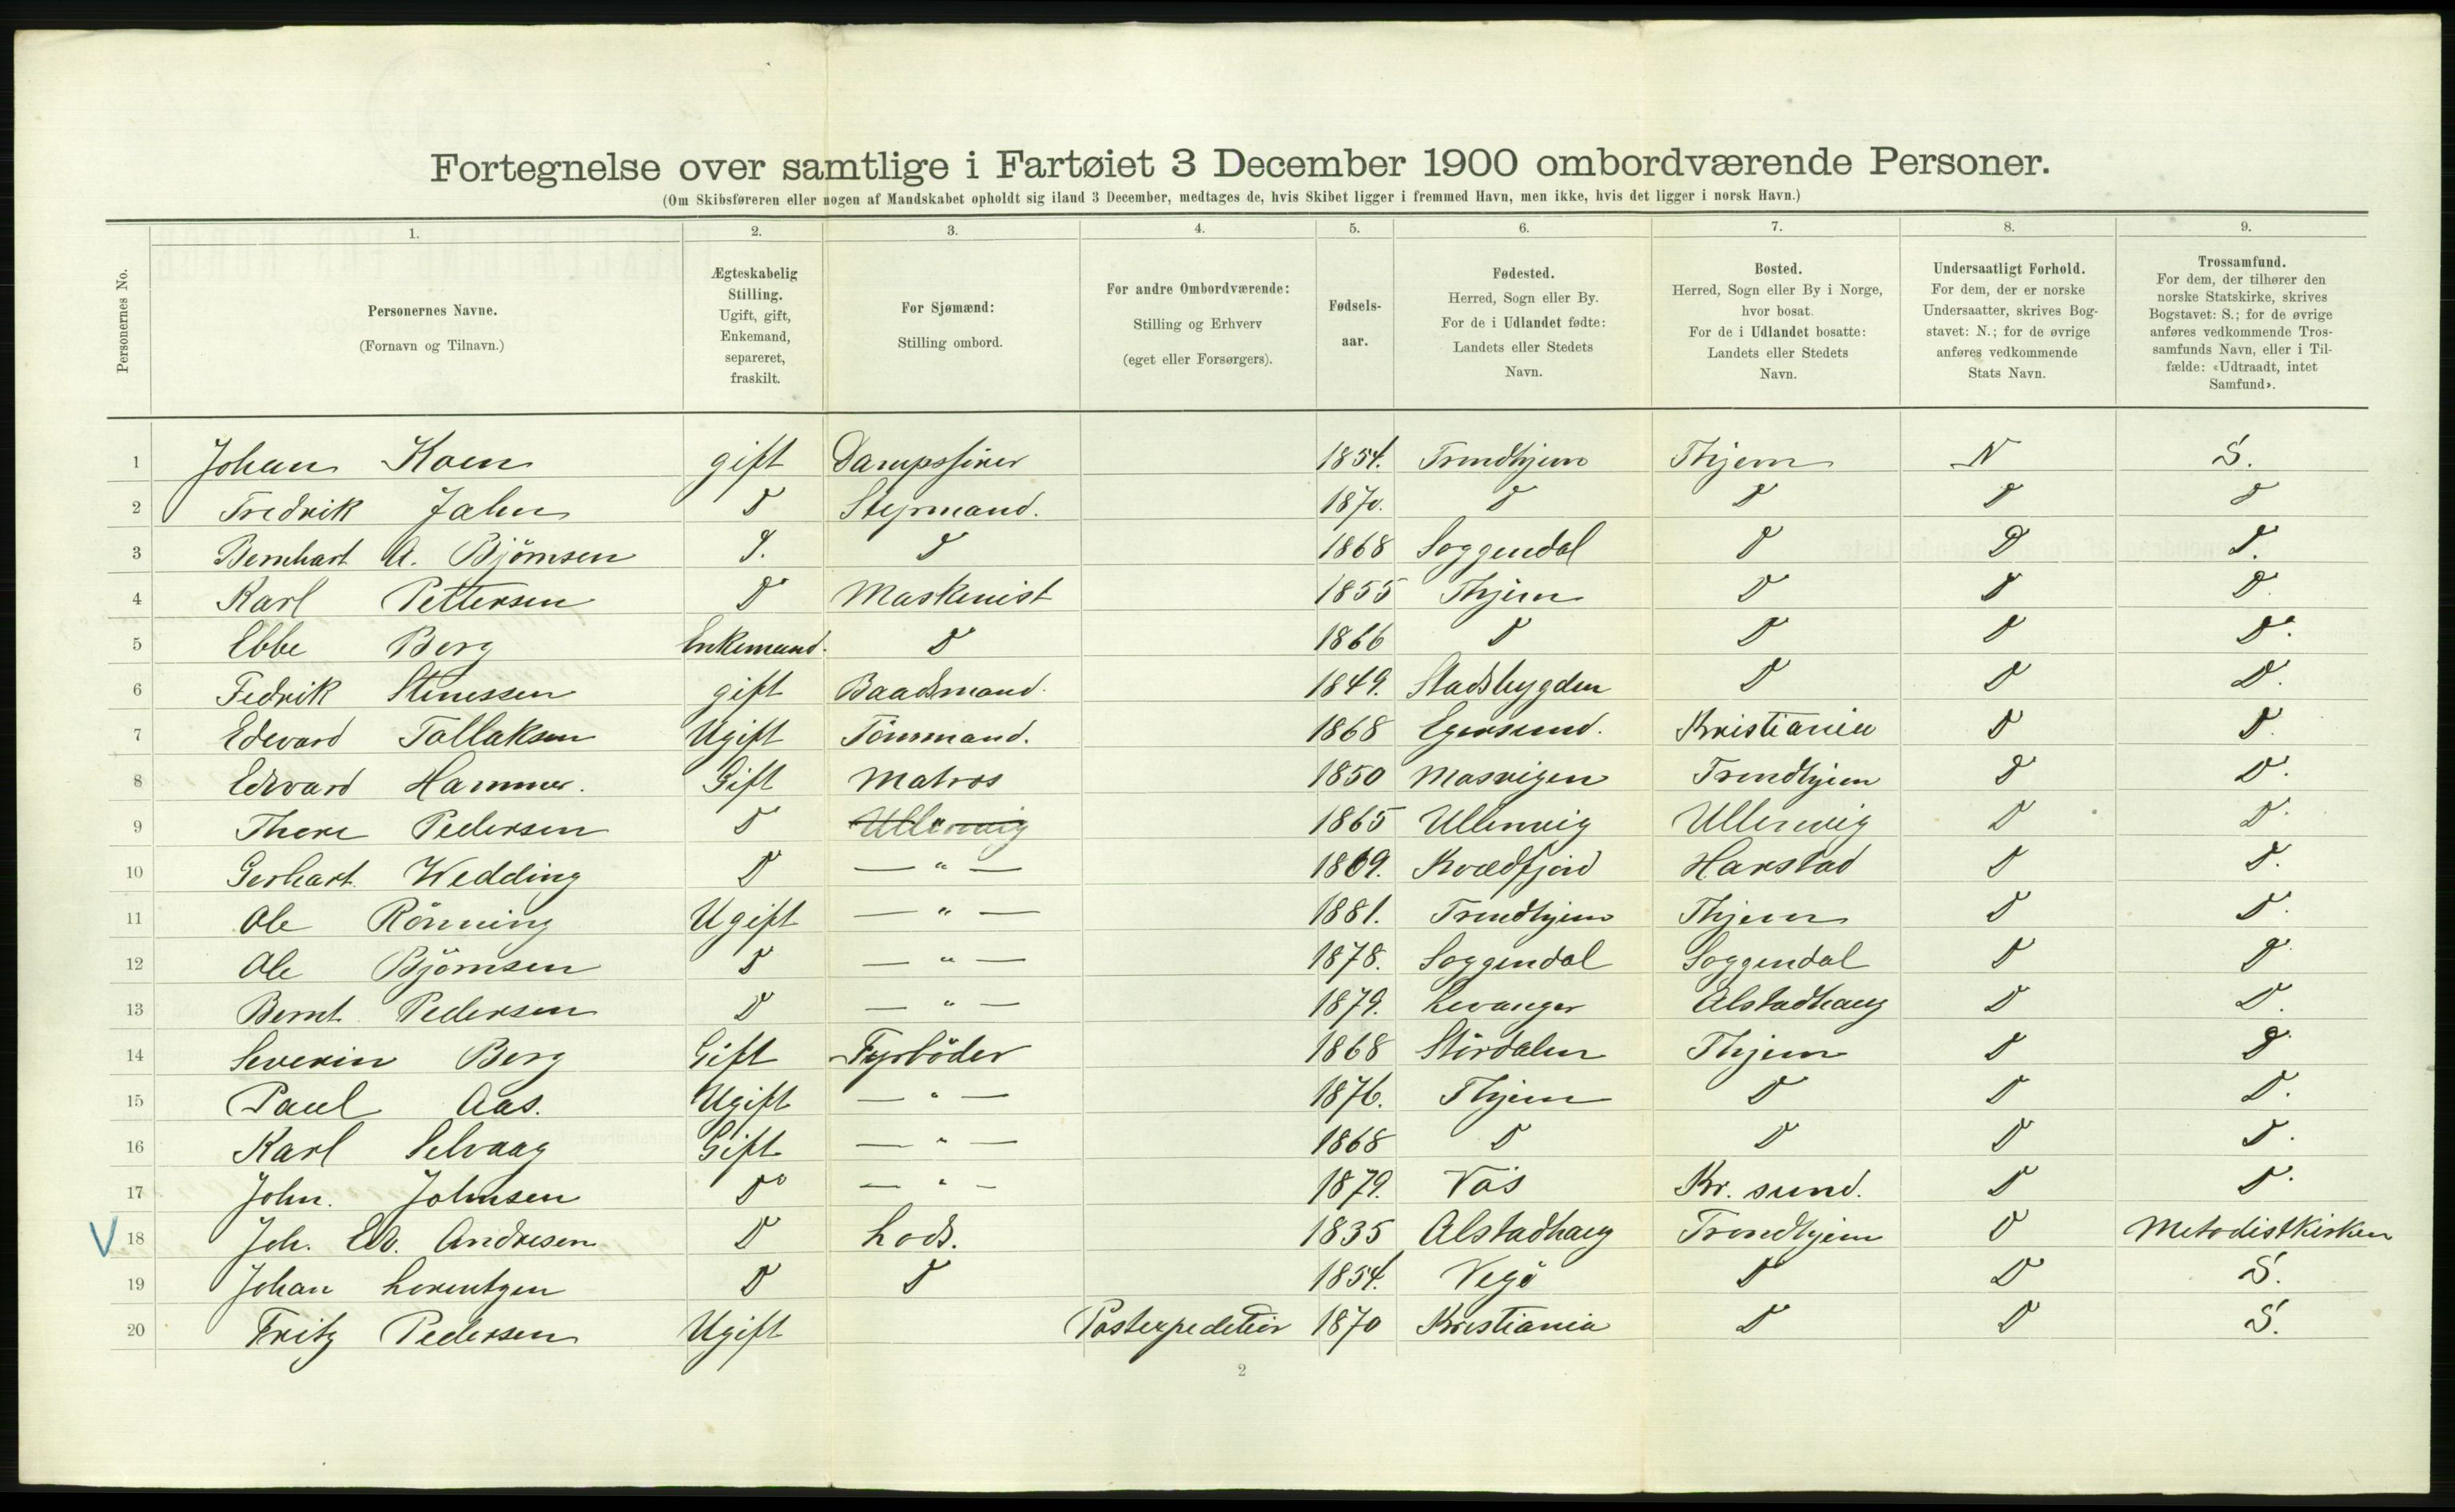 Fortegnelse over samtlige i Fartøiet 3 December 1900 ombordværende Personer.
(Om Skibsføreren eller nogen af Mandskabet opholdt sig iland 3 December, medtages de, hvis Skibet ligger i fremmed Havn, men ikke, hvis det ligger i norsk Havn.)
Personernes No.
1. 2. 3. 4. 5. 6. 7. 8. 9.
Personernes Navne.
(Fornavn og Tilnavn.)
Ægteskabelig
Stilling.
Ugift, gift,
Enkemand,
separeret,
fraskilt.
For Sjømænd:
Stilling ombord.
For andre Ombordværende:
Stilling og Erhverv
(eget eller Forsørgers).
Fødsels-
aar.
Fødested.
Herred, Sogn eller By.
For de i Udlandet fødte:
Landets eller Stedets
Navn.
Bosted.
Herred, Sogn eller By i Norge,
hvor bosat.
For de i Udlandet bosatte:
Landets eller Stedets
Navn.
Undersaatligt Forhold.
For dem, der er norske
Undersaatter, skrives Bog-
stavet: N.; for de øvrige
anføres vedkommende
Stats Navn.
Trossamfund.
For dem, der tilhører den
norske Statskirke, skrives
Bogstavet: S.; for de øvrige
anføres vedkommende Tros-
samfunds Navn, eller i Til-
fælde: «Udtraadt, intet
Samfund».
1 Johan gift 1854. Trondhjem Thjem N S.
2 Fredrik Jahn D Styrmand. 1870. D D D D
3 Bernhart A. Björnsen D 1868 Soggendal D D D.
4 Karl Pettersen D Maskinist 1855 Thjem D D D.
5 Ebbe Berg Enkemand. D 1866 D D D D.
6 Fedrik Stenessen gift Baadsmand. 1849. Stadsbygden D D D.
7 Edevard Tollaksen Ugift Tömmand. 1868 Egersund. Kristiania D D.
8 Edevard Hammer. Gift Matros 1850 Masvigen Trondhjem D D.
9 Thore Pedersen D Ullervig 1865 Ullervig Ullervig D D.
10 Gerhart Wedding D — " — 1869. Kvædfjord Harstad D D.
11 Ole Rönning Ugift — " — 1881. Trondhjem Thjem D D.
12 Ole Björnsen D — " — 1878. Soggendal Soggendal D D
13 Bernt Pedersen D — " — 1879. Levanger Alstadhaug D D.
14 Severin Berg Gift Fyrböder 1868 Stördalen Thjem D D.
15 Paul Aas. Ugift — " — 1876. Thjem D D D.
16 Karl Selvaag Gift — " — 1868 D D D D.
17 John. Johnsen Do — " — 1879. Vös Kr. sund. D D.
V 18 Joh. Ed. Andresen D Lods. 1835 Alstadhaug Trondhjem D Metodistkirken
19 Johan Lorentzen D D 1854. Vegö D D S.
20 Fritz Pedersen Ugift Postexpeditiör 1870 Kristiania D D S.
2